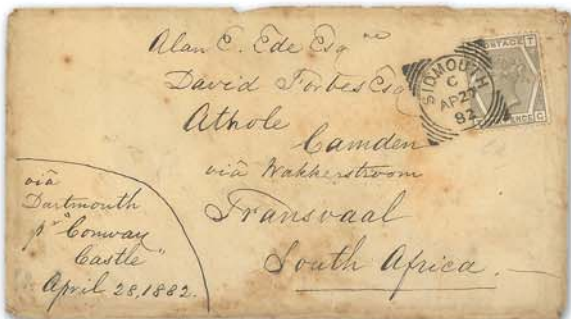 Alan E. Ede Esqre
David Forbes Esq
Athole
Camden
via Wakkerstroom
Transvaal
South Africa.
via
Dartmouth
pr "Conway
Castle"
April 28, 1882.
SIDMOUTH
C
AP 27
82
POSTAGE
T
C